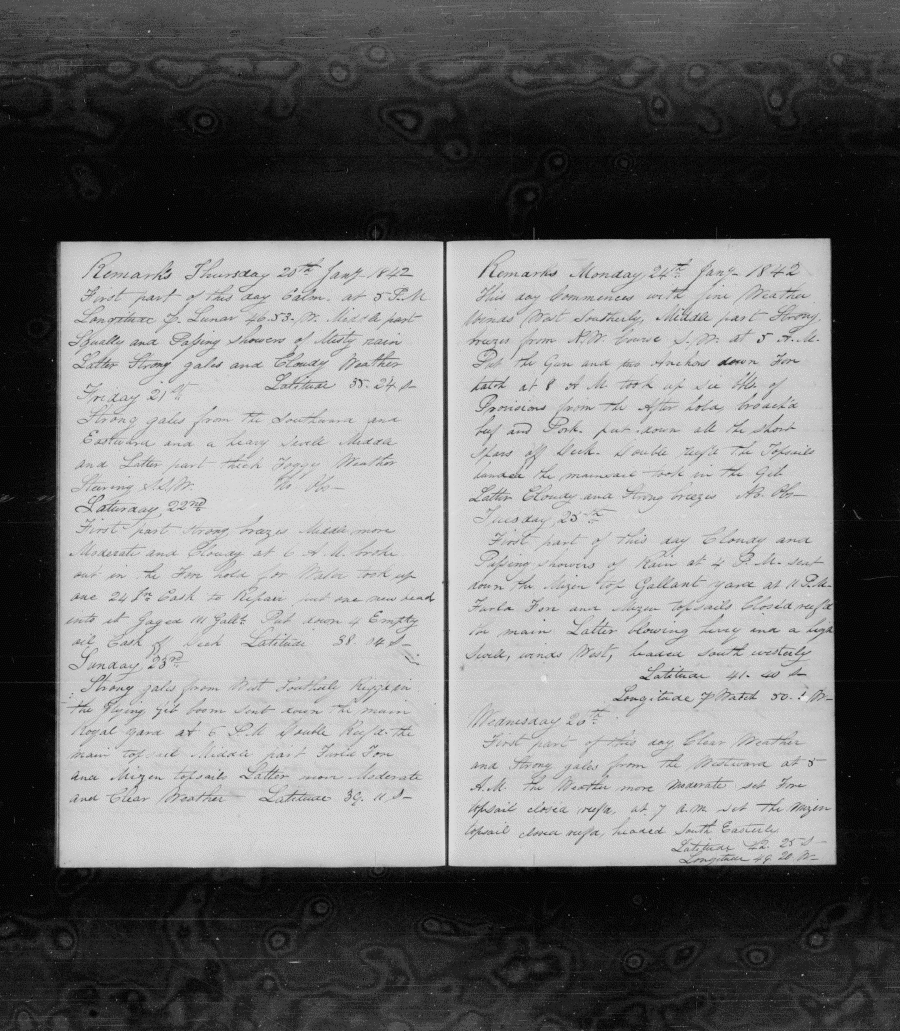 Remarks Thursday 20th Jany 1842
First part of this day Calm. at 5 P.M
Longitude p. Lunar 46.53. W. Middle part
Squalls and Passing showers of Misty rain
Latter Strong gales and Cloudy Weather
Latitude 35.24 S
Friday 21st
Strong gales from the Southward and
Eastward and a heavy Swell Middle
and Latter part thick Foggy Weather
Stearing S.S.W. No Obs
Saturday 22nd
First part strong breezes Middle more
Moderate and Cloudy at 6 A.M. broke
out in the Fore hold for Water took up
one 24 Cask to Repair put one new head
into it Gaged 111 Galls. Put down 4 Empty
oil Cask of Deck Latitude 38. 14 S
Sunday 23rd
Strong gales from West
the Flying jib boom Sent down the main
Royal yard at 6 P.M Double Reefd the
main topsail Middle part Furld Fore
and Mizen topsails Latter more Moderate
and Clear Weather Latitude 39. 11 S
Remarks Monday 24th Jany 1842
This day Commences with fine Weather
winds West Southerly, Middle part Strong
breezes from N.W. Course S.W. at 5 A.M.
Put the Gun and two Anchors down Fore
hatch at 8 A M took up Six bbls of
Provisions from the After hold, broach'd
beef and Pork. put down all the Short
Spars off Deck. Double reef'd the Topsails
the mainsail took in the Gib
Latter Cloudy and Strong breezes No Obs
Tuesday 25th
First part of this day Cloudy and
Passing showers of Rain at 4 P.M. sent
down the Mizen top Gallant yard at 11 P.M.
Furld Fore and Mizen topsails Closed reefd
the main Latter blowing heavy and a high
Swell, winds West, headed South westerly
Latitude 41. 40 S
Longitude p Watch 50. W
Wednesday 26th
First part of this day Clear Weather
and Strong gales from the Westward at 5
A.M. the Weather more moderate set Fore
topsail closed reefd, at 7 a.m set the Mizen
topsail closed reefd, headed South Easterly
Latitude 42 25 S
Longitude 49 20 W